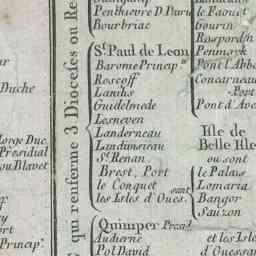 Penthievre D. Pairie
Bourbriac
St. Paul de Leon
Barome Princip.
Roscoff
Lanilis
Guidelmede
Lesneven
Landerneau
Landivisieau
St. Renan
Brest, Port
le Conquet
les Isles d'Oues.
sant
Quimper Presid.
Audierne
Pol David
qui renferme 3 Dioceses ou Re
Duche
Presidial
ou Blavet
Princip.
le Faouet
Gourin
Rospord
Penmark
Pont l'Abb
Concarneau
Port
Pont d'Ave
Isle de
Belle Isle
ou sont
le Palais
Lomaria
Bangor
Sauzon
et les Isle